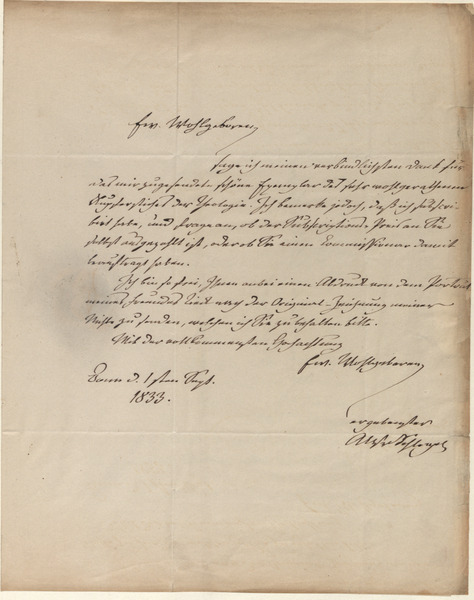 Ew. Wohlgeboren
sage ich meinen verbindlichsten Dank für
das mir zugesendete schöne Exemplar des sehr wohlgerathenen
Kupferstiches der Theologie. Ich bemerke jedoch, daß ich subscri-
birt habe, und frage an, ob der Subscriptions-Preis an Sie
selbst ausgezahlt ist, oder ob Sie einen Commissionar damit
beauftragt haben.
Ich bin so frei, Ihnen anbei einen Abdruck von dem Portrait
meines Freundes Tieck nach der Original-Zeichnung meiner
Nichte zu senden, welchen ich Sie zu behalten bitte.
Mit der vollkommensten Hochachtung
Ew. Wohlgeboren
Bonn d. 1sten Sept.
1833.
ergebenster
AWvSchlegel